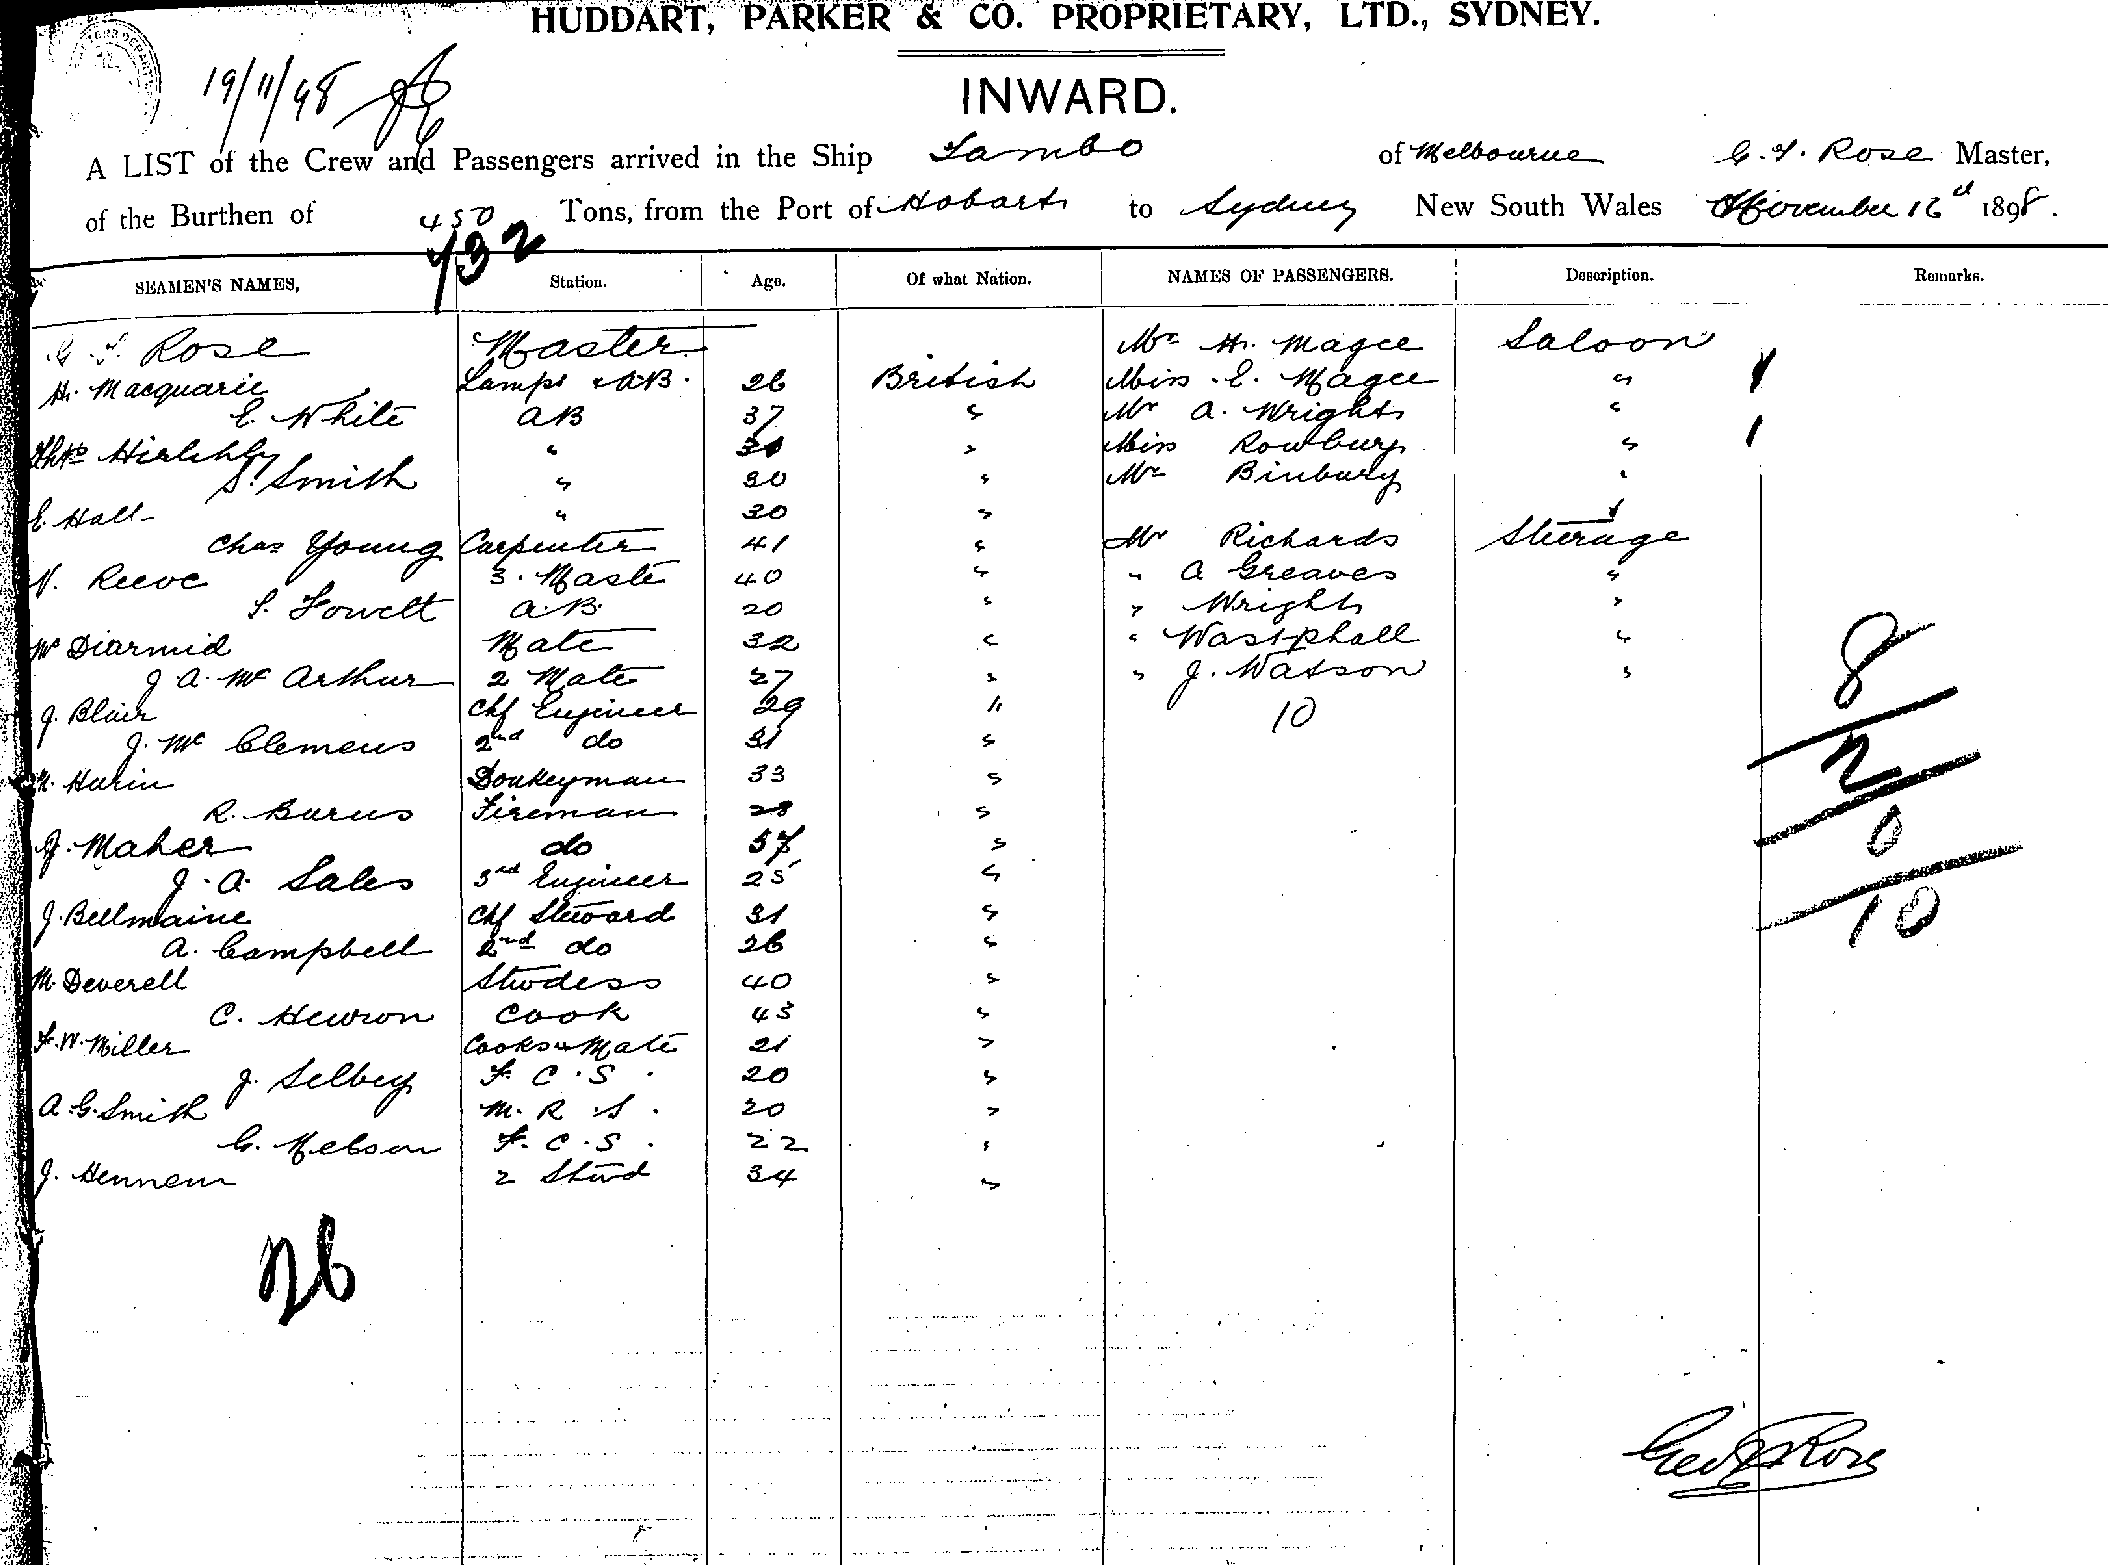 HUDDART, PARKER & CO. PROPRIETARY, LTD., SYDNEY.
19/11/98
INWARD.
A LIST of the Crew and Passengers arrived in the Ship Tambo of Melbourne G. T. Rose Master,
of the Burthen of 450 Tons, from the Port of Hobart to Sydney New South Wales November 16th 1898.
732
SEAMEN'S NAMES, Station. Age. Of what Nation. NAMES OF PASSENGERS. Description. Remarks.
G. T. Rose Master Mr H. Magee Saloon
H. Macquarie Lamps & AB. 26 British Miss E. Magee " 1
E. White AB 37 " Mr A. Wright "
" " Miss Rowbury " 1
S. Smith " 30 " Mr Binbury "
E Hall " 30 "
Chas Young Carpenter 41 " Mr Richards Steerage
N. Reeve 3. Mate 40 " " A Greaves "
A.B. 20 " " Wright "
Mc Diarmid Mate 32 " " Wastphall "
J A. Mc Arthur 2 Mate 27 " " J. Watson "
J. Blair Chf Engineer 29 " 10
J. Mc Clemens 2nd do 31 "
Donkeyman 33 "
R. Burns Fireman 28 "
J. Maher do 57 "
J. A. Sales 3rd Engineer 25 "
J. Bellmaine Chf Steward 31 "
A. Campbell 2nd do 26 "
M. Deverell Stwdess 40 "
C. Hewson Cook 43 "
F. W. Miller Cooks Mate 21 "
J. Selbey F. C. S. 20 "
A. G. Smith M. R. S. 20 "
G. Nelson F. C. S. 22 "
J. Hennem 2 Stwd 34 "
8
2
0
10
26
Geo T Rose